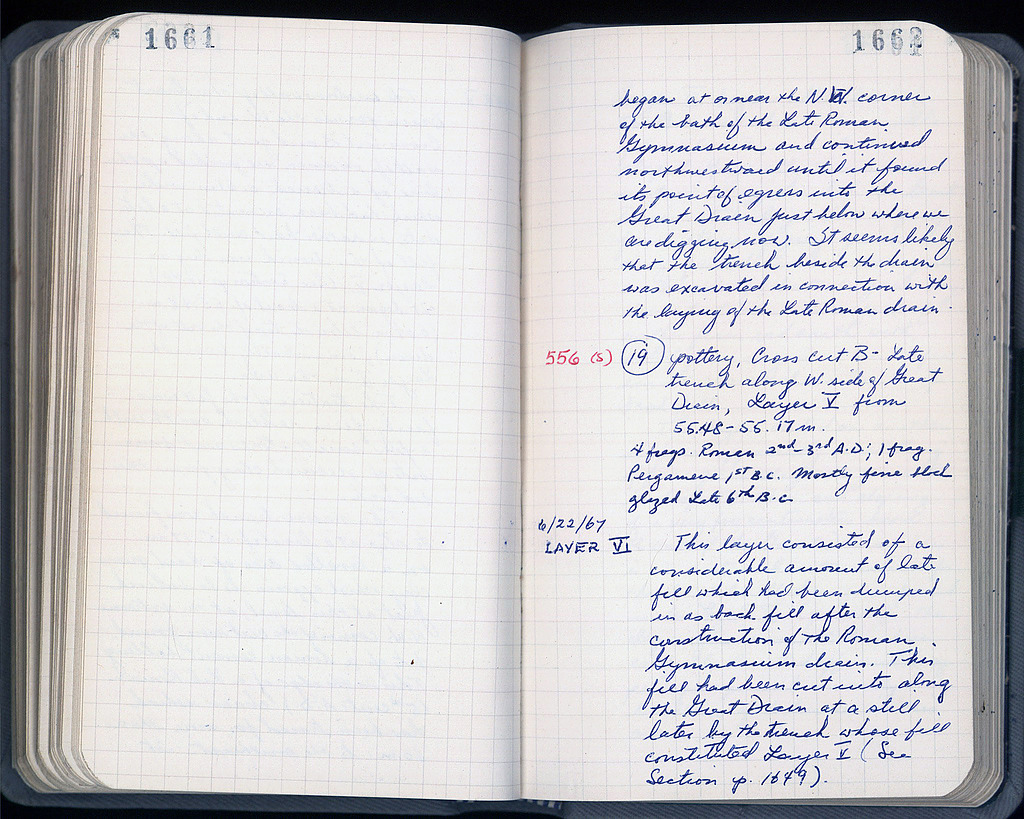 1661
1662
began at or near the N.W. corner
of the bath of the Late Roman
Gymnasium and continued
northwestward until it found
its point of egress into the
Great Drain just below where we
are digging now. It seems likely
that the trench beside the drain
was excavated in connection with
the laying of the Late Roman drain.
556 (s) 19 pottery, Cross cut B - Late
trench along W. side of Great
Drain, Layer V from
55.48 - 55.17 m.
4 frags. Roman 2nd - 3rd A.D.; 1 frag.
Pergamene 1st B.C. Mostly fine black
glazed Late 6th B.C.
6/22/67
LAYER VI This layer consisted of a
considerable amount of late
fill which had been dumped
in as back fill after the
construction of the Roman
Gymnasium drain. This
fill had been cut into along
the Great Drain at a still
later by the trench whose fill
constituted Layer V (See
Section p. 1649).